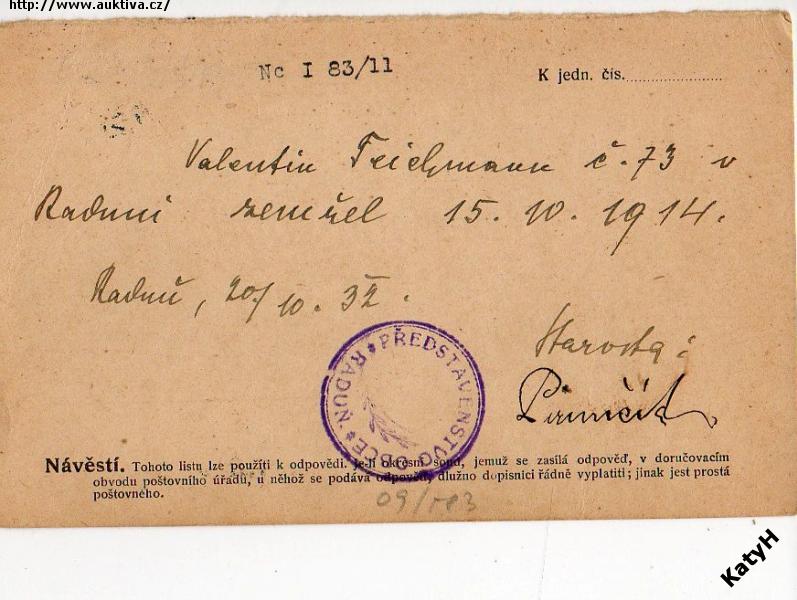 http://www.auktiva.cz/
Nc I 83/11
K jedn. čís.
Valentin Teichmann č. 73 v
Raduni zemřel 15. 10. 1914.
Raduň, 20/10. 32.
Starosta:
PŘEDSTAVENSTVO OBCE * RADUŇ *
Návěstí. Tohoto listu lze použíti k odpovědi. Je-li okresní soud, jemuž se zasílá odpověď, v doručovacím
obvodu poštovního úřadu, u něhož se podává odpověď, dlužno dopisnici řádně vyplatiti; jinak jest prostá
poštovného.
KatyH